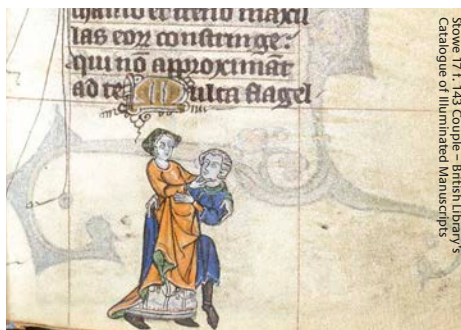 chamo et freno maxil
las eoꝝ constringe:
qui nō approximāt
ad te Multa flagel
Stowe 17 f. 143 Couple – British Library's
Catalogue of Illuminated Manuscripts